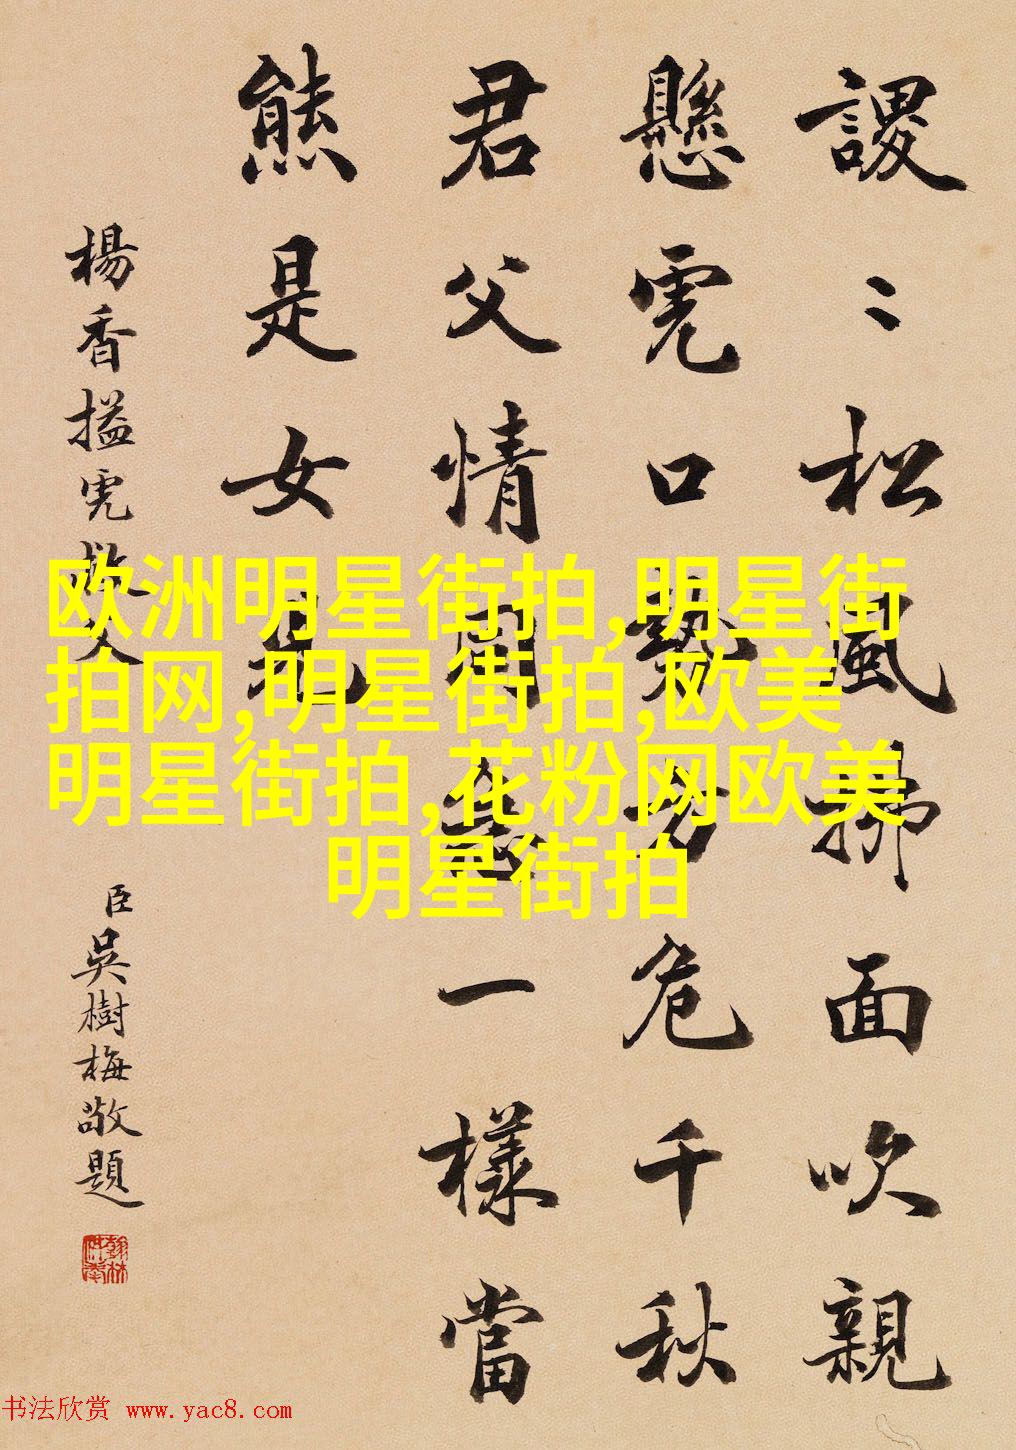 謖〻松風拂面吹親
懸虎口勢方危千秋
君父情同急一樣當
熊是女兒
楊香搤虎救父
臣吳樹梅敬題
翰林供奉
欧洲明星街拍,明星街
拍网,明星街拍,欧美
明星街拍,花粉网欧美
明星街拍
书法欣赏 www.yac8.com